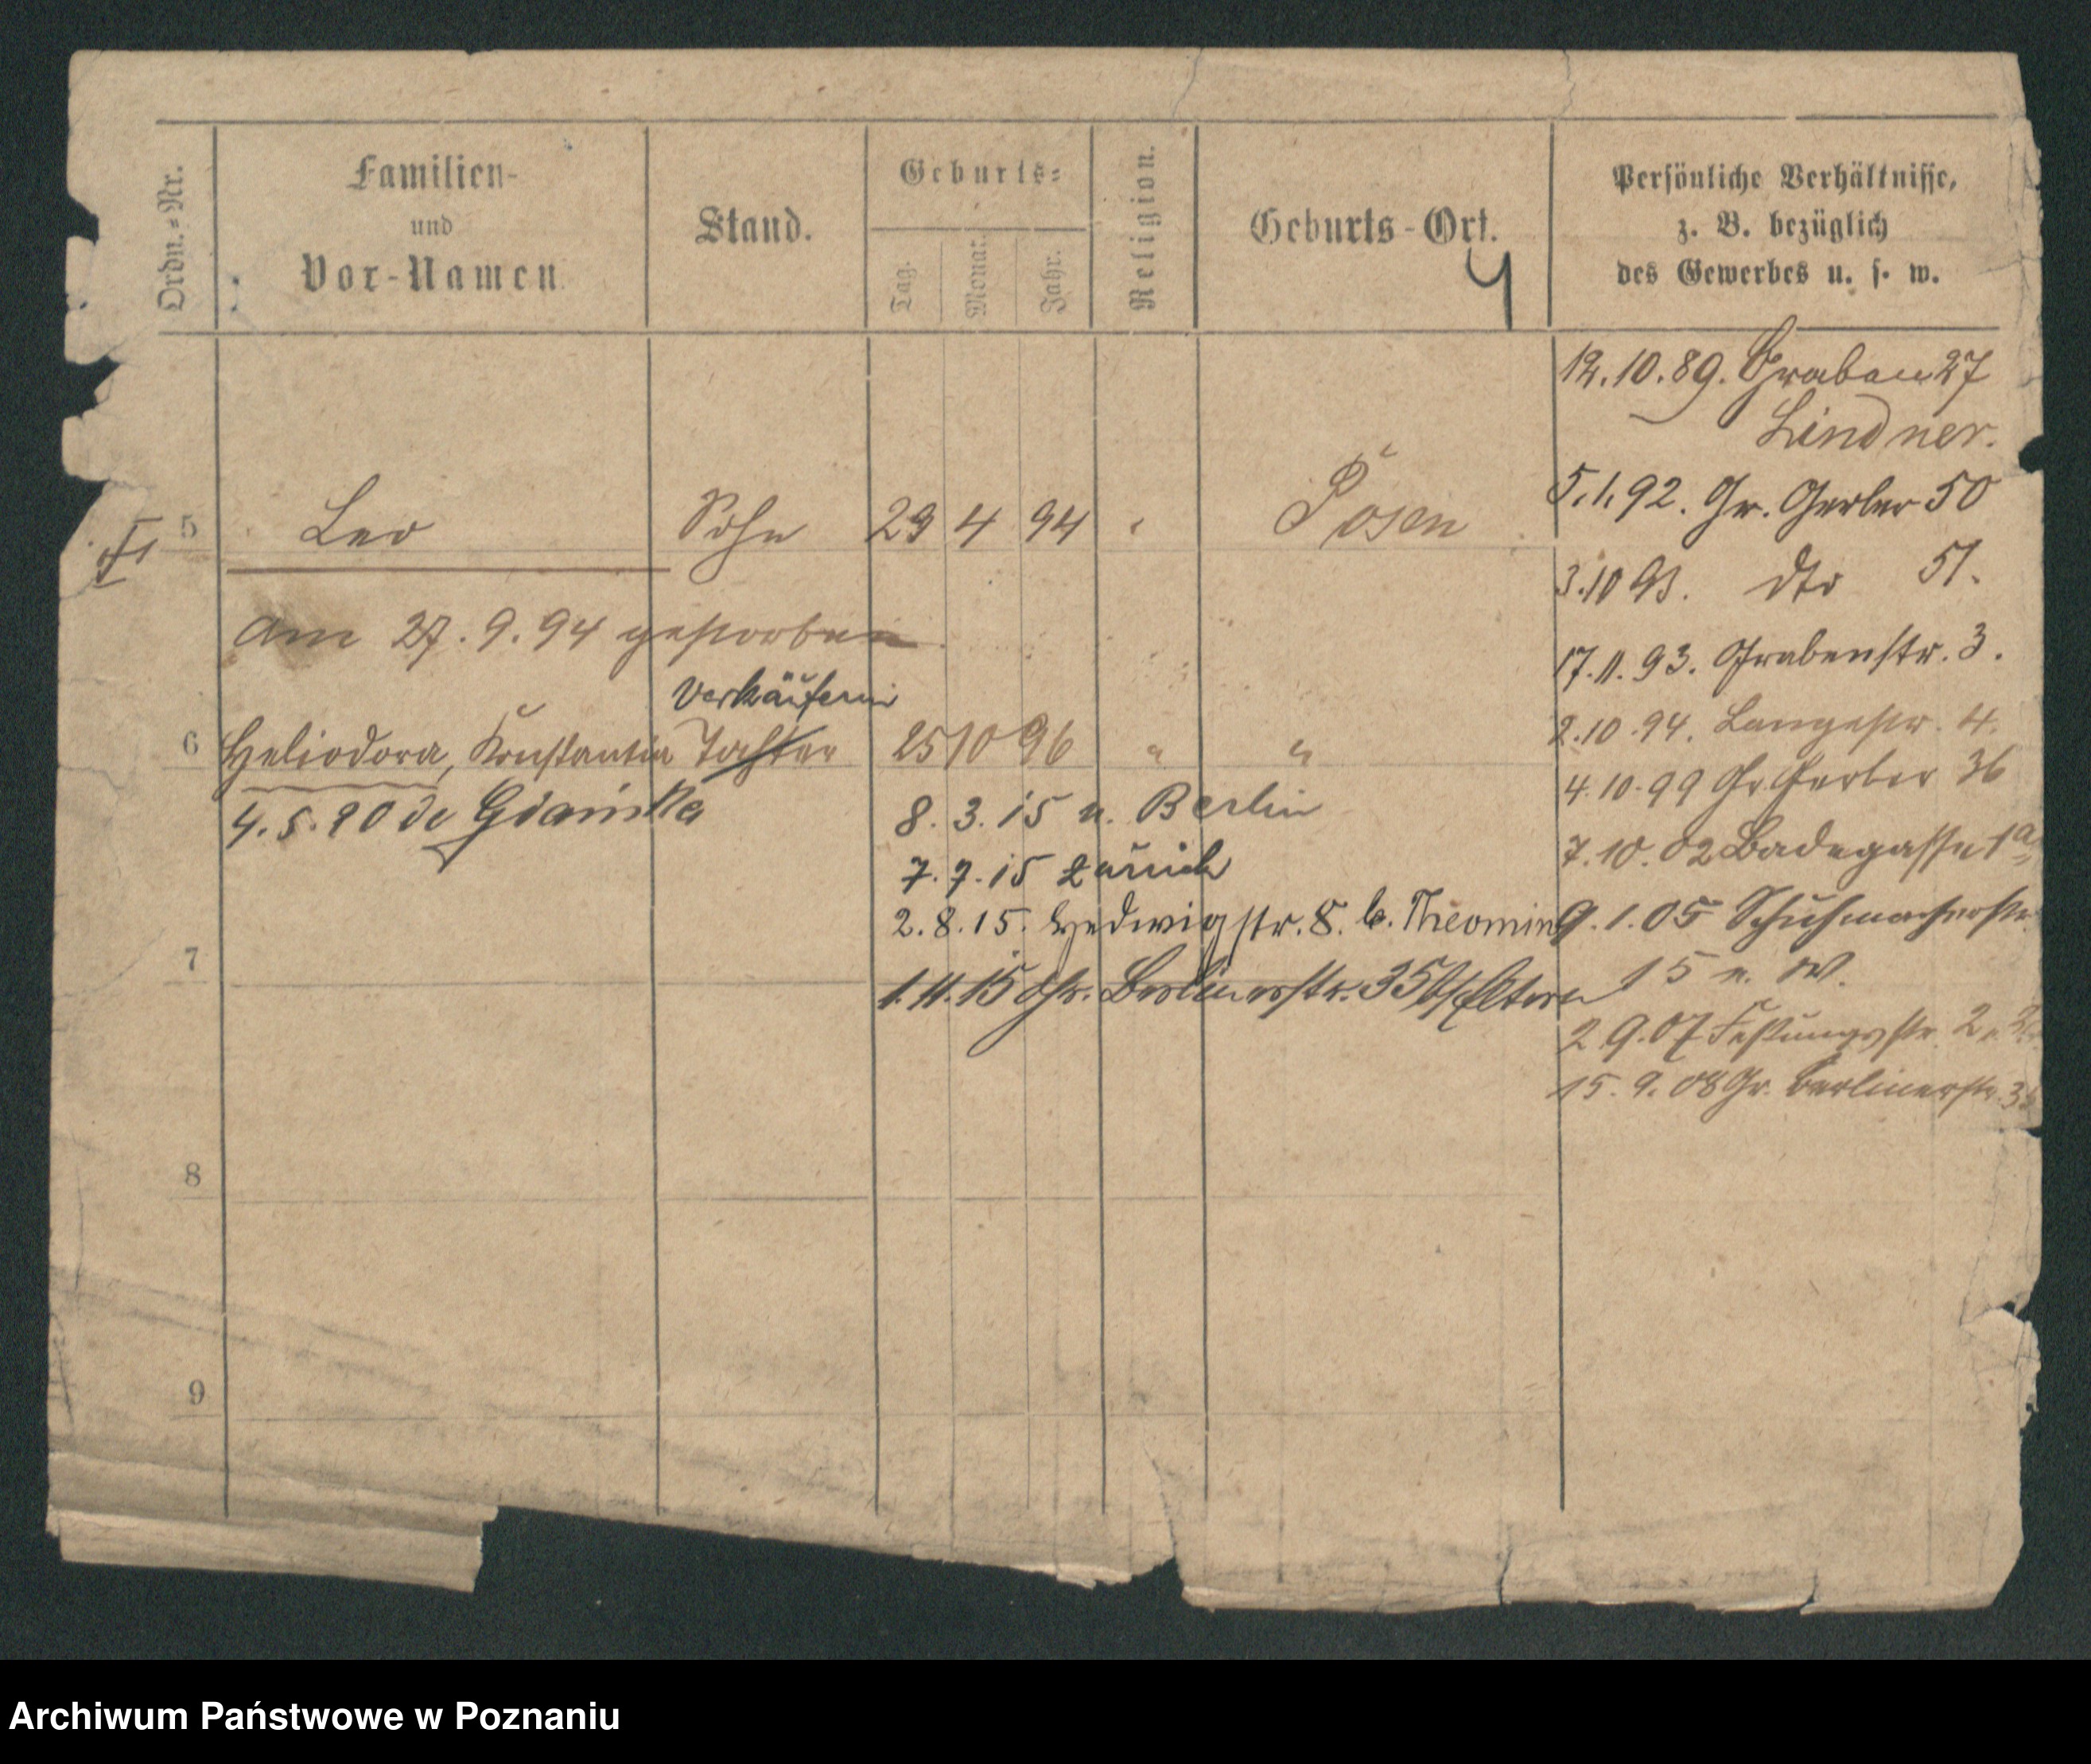 Ordn.=Nr.
Familien-
und
Vor-Namen
Stand.
Geburts=
Tag.
Monat.
Jahr.
Religion.
Geburts-Ort.
4
Persönliche Verhältnisse,
z. B. bezüglich
des Gewerbes u. s. w.
12.10.89. Graben 27
Lindner.
5.1.92. Gr. Gerber 50
3.10 93. dto 51.
17.11.93. Grabenstr. 3.
2.10.94. Langestr. 4.
4.10.99 Gr. Gerber 36
7.10.02 Badegasse 1a
9.1.05 Schuhmacherstr.
15 n. W.
2 9.07 Festungsstr. 2
15.9.08 Gr. Berlinerstr. 3
5 Leo Sohn 29 4 94 " Posen
am 27.9.94 gestorben
Verkäuferin
6 Heliodora, Konstantia Tochter 25 10 96 " "
4.5.20 do Gdańska
8.3.15 n. Berlin
7.7.15 zurück
2.8.15. Hedwigstr. 8. b. Theomin
1.11.15 Gr. Berlinerstr. 35 b/Eltern
7
8
9
Archiwum Państwowe w Poznaniu